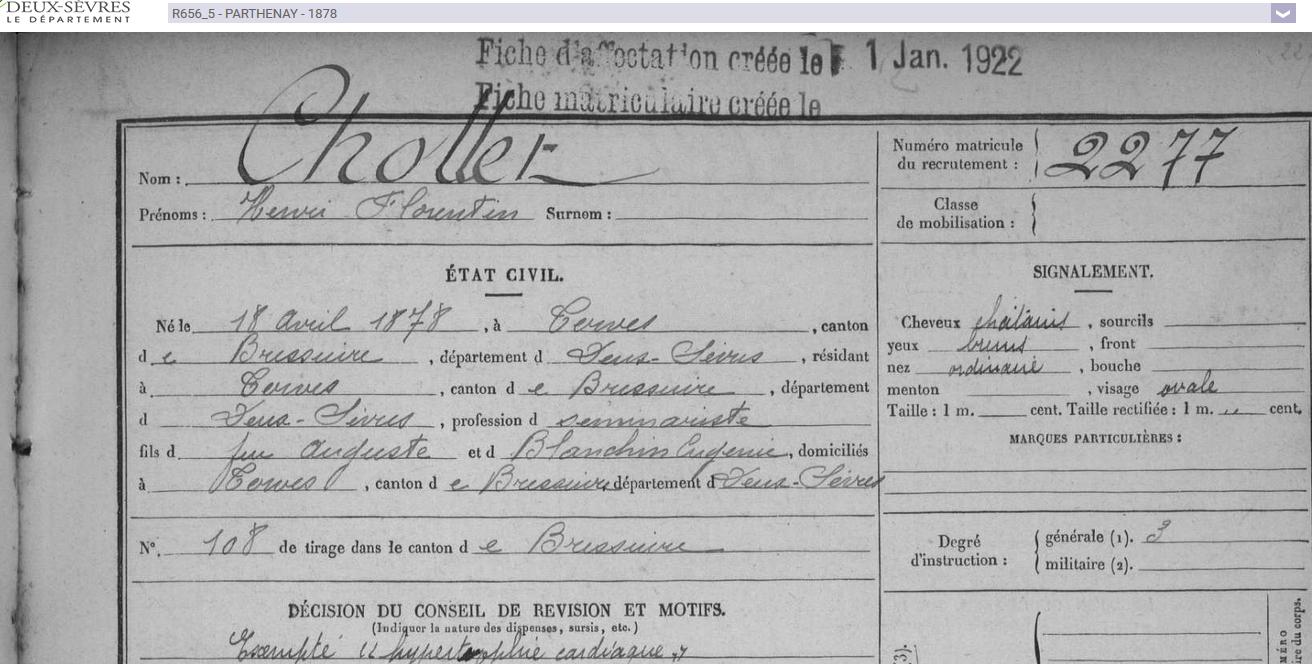 DEUX-SÈVRES
LE DÉPARTEMENT
R656_5 - PARTHENAY - 1878
Fiche d'affectation créée le 1 Jan. 1922
Fiche matriculaire créée le
Nom : Chollet
Prénoms : Henri Florentin Surnom :
Numéro matricule
du recrutement : 2277
Classe
de mobilisation :
ÉTAT CIVIL.
Né le 18 Avril 1878, à Terves, canton
de Bressuire, département d Deux-Sèvres, résidant
à Terves, canton de Bressuire, département
d Deux-Sèvres, profession d séminariste
fils d feu Auguste et d Blanchin Eugénie, domiciliés
à Terves, canton de Bressuire, département d Deux-Sèvres
N°. 108 de tirage dans le canton de Bressuire
DÉCISION DU CONSEIL DE REVISION ET MOTIFS.
(Indiquer la nature des dispenses, sursis, etc.)
Exempté "hypertrophie cardiaque"
SIGNALEMENT.
Cheveux châtains, sourcils
yeux bruns, front
nez ordinaire, bouche
menton, visage ovale
Taille : 1 m. cent. Taille rectifiée : 1 m. cent.
MARQUES PARTICULIÈRES :
Degré
d'instruction :
générale (1). 3
militaire (2).
MÉRO
re du corps.
(3).